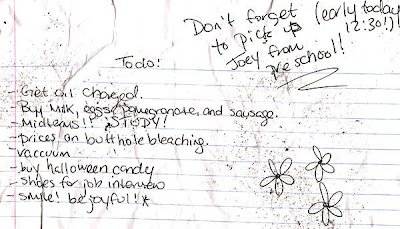 Don't forget (early today
to pick up 12:30!)!
Joey from
preschool!!
Todo:
- Get oil changed.
- Buy Milk, eggs, pomegranate, and sausage.
- Midterms!! STUDY!
- prices on butthole bleaching.
- vaccuum
- buy halloween candy
- shoes for job interview
- smile! be joyful!*